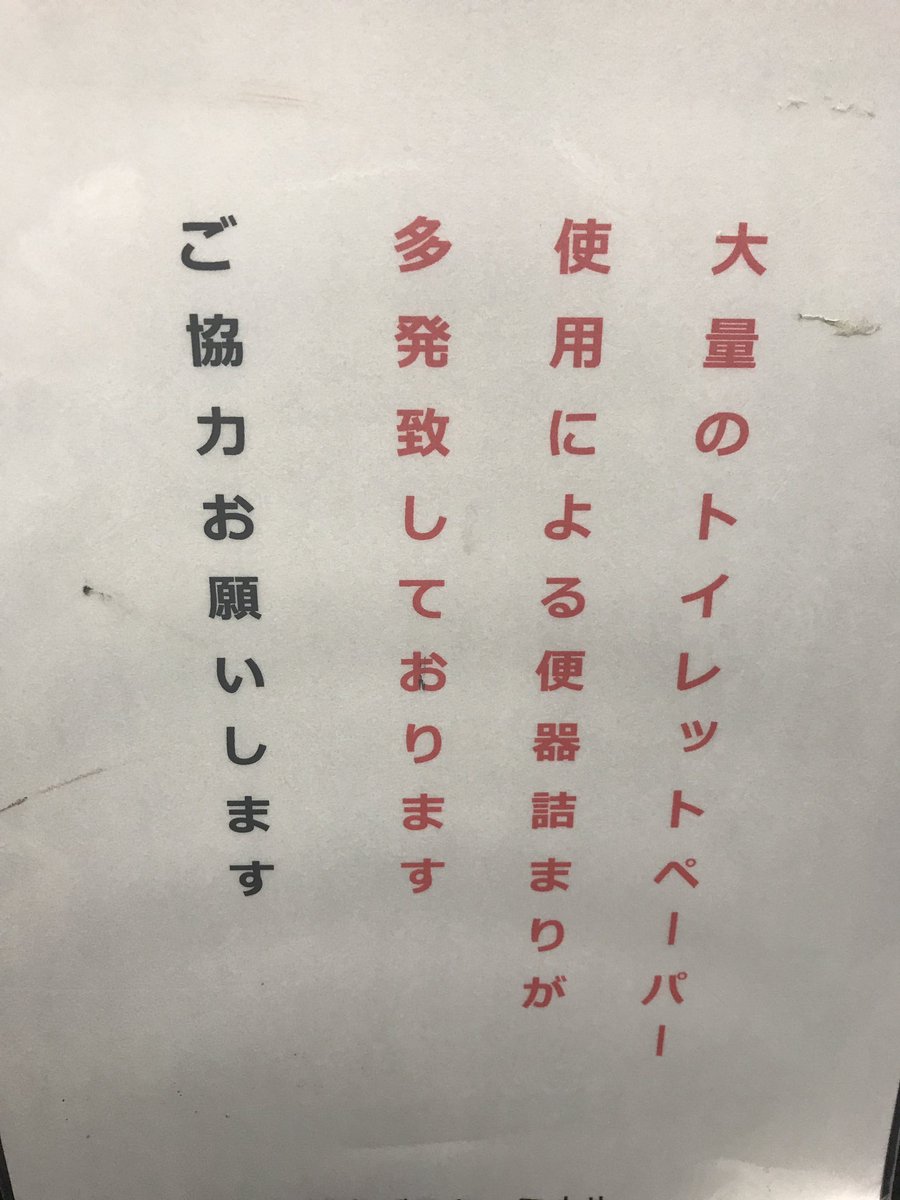 大量のトイレットペーパー
使用による便器詰まりが
多発致しております
ご協力お願いします